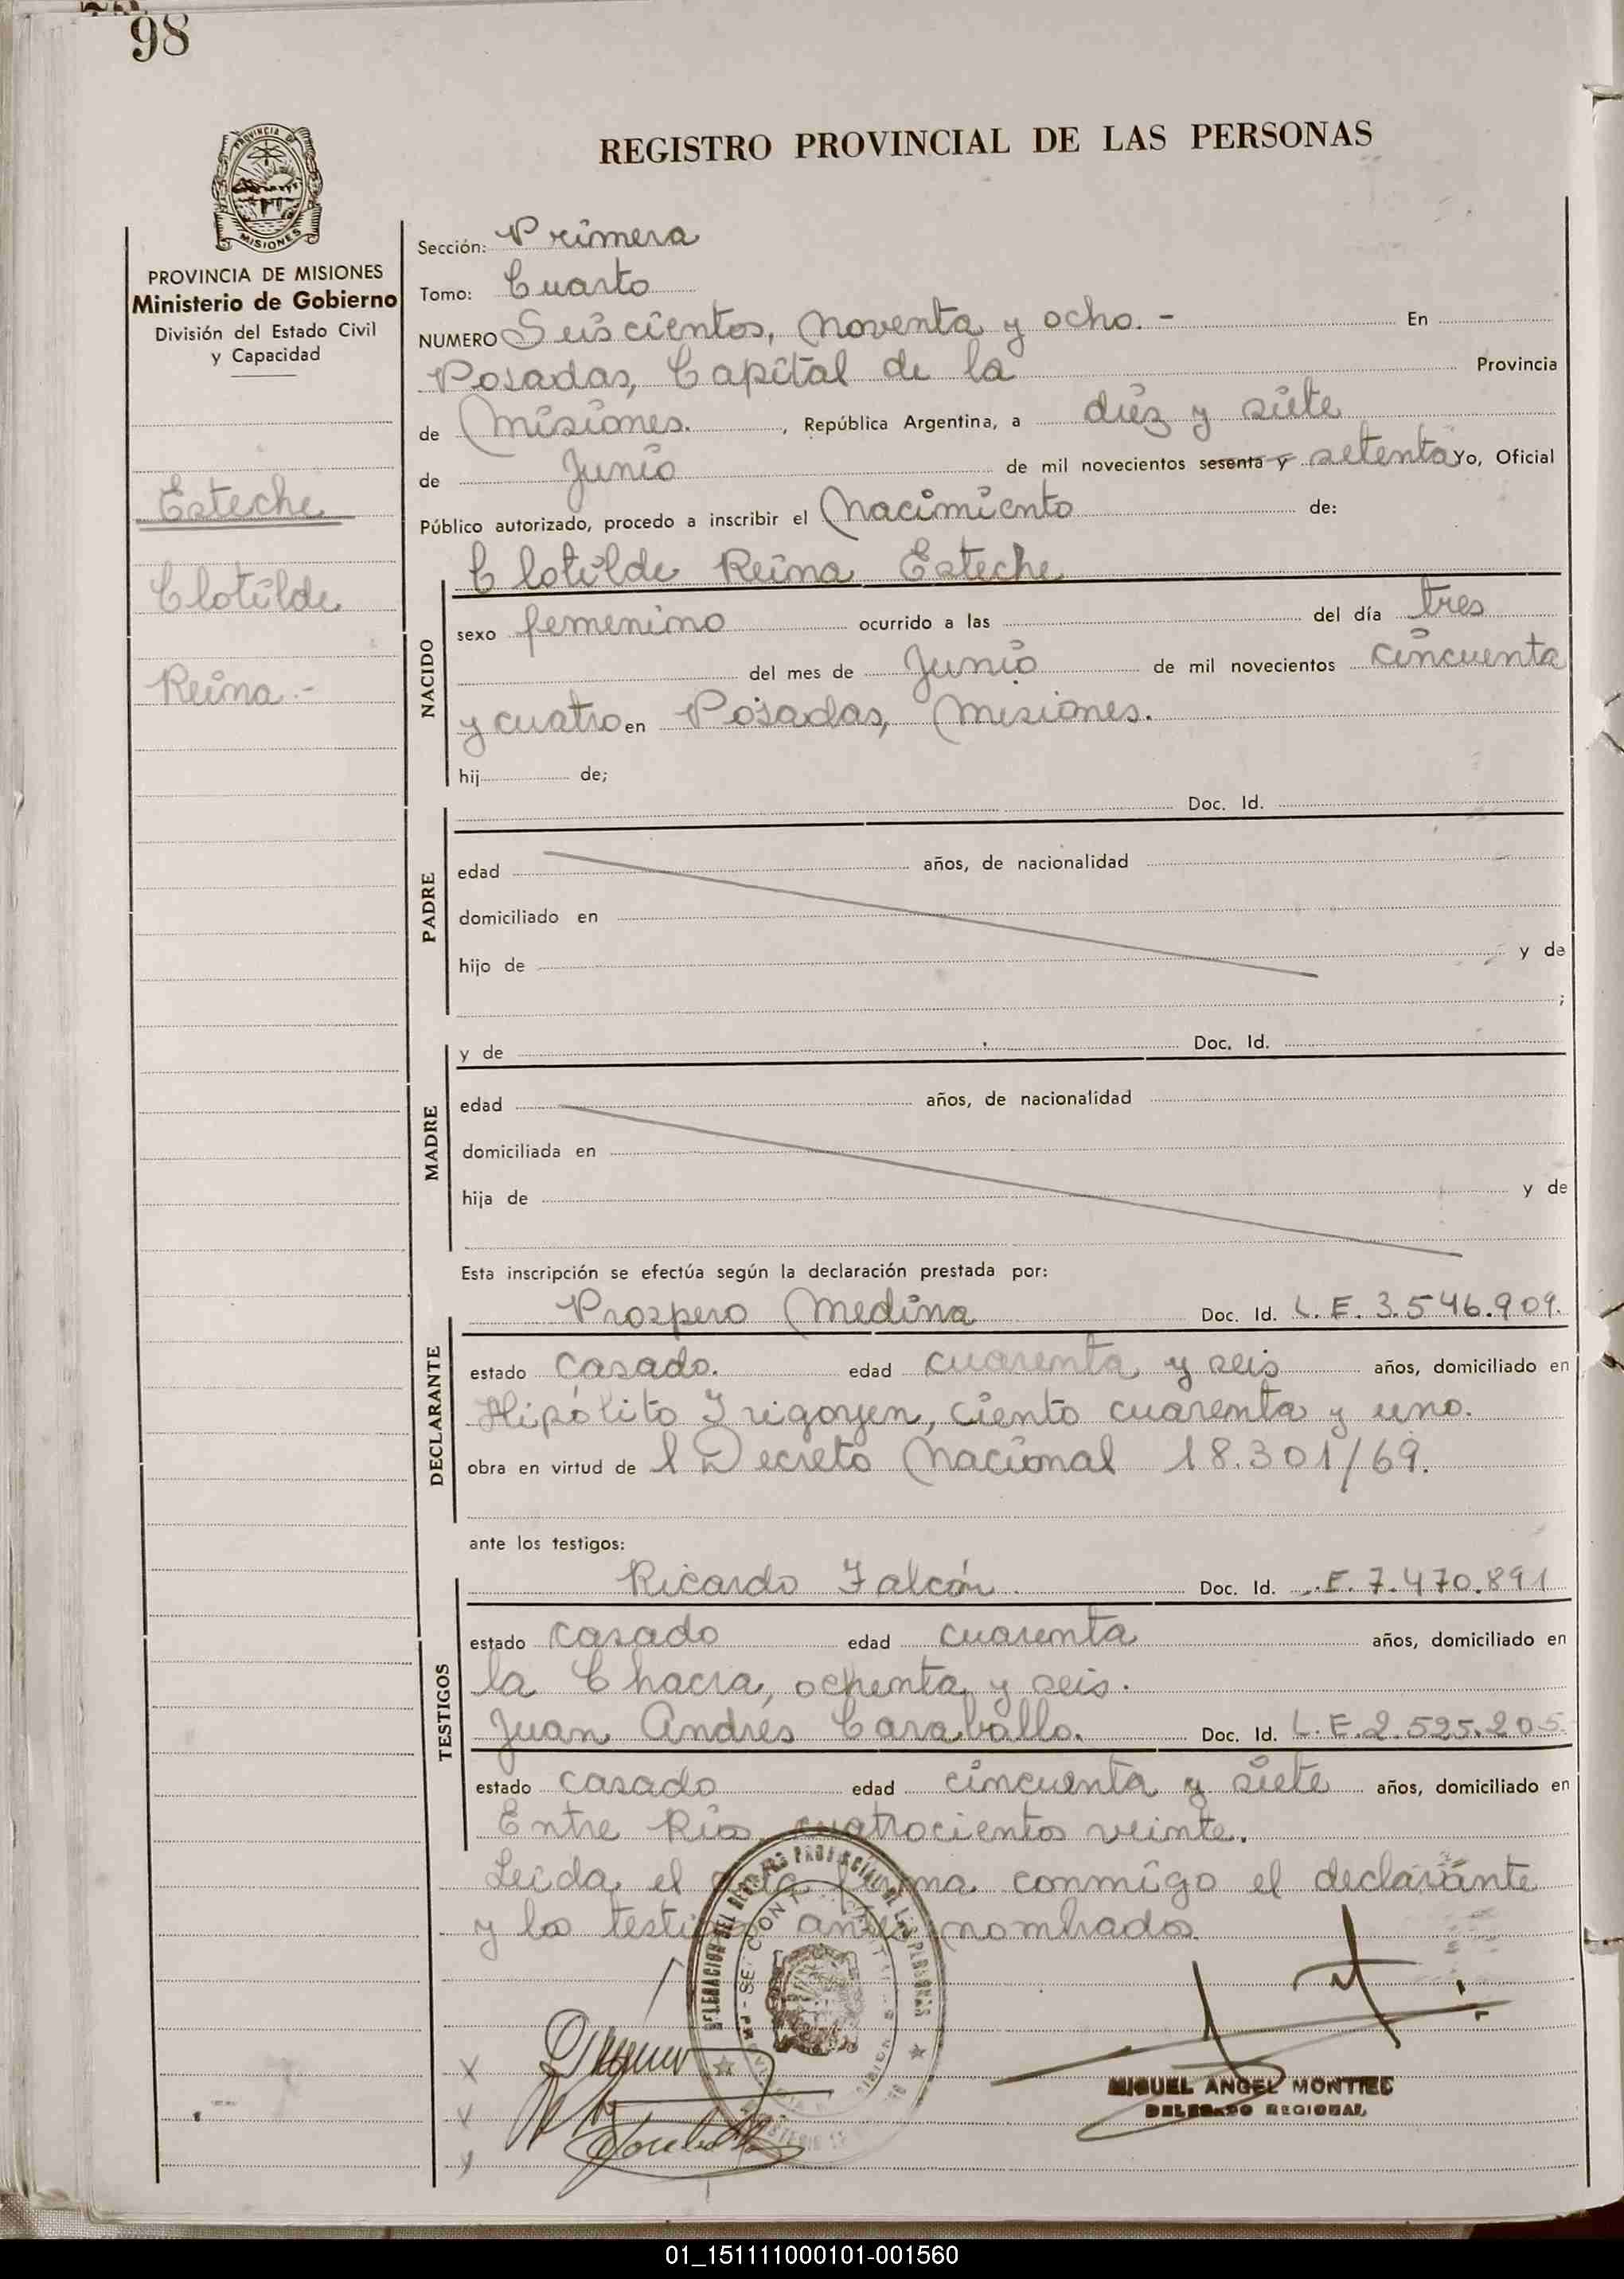 98
PROVINCIA DE
MISIONES
REGISTRO PROVINCIAL DE LAS PERSONAS
PROVINCIA DE MISIONES
Ministerio de Gobierno
División del Estado Civil
y Capacidad
Esteche
Clotilde
Reina.-
Sección: Primera
Tomo: Cuarto
NUMERO Seiscientos, noventa y ocho.- En
Posadas, Capital de la Provincia
de Misiones. , República Argentina, a diez y siete
de Junio de mil novecientos sesenta y setenta Yo, Oficial
Público autorizado, procedo a inscribir el Nacimiento de:
Clotilde Reina Esteche
NACIDO
sexo femenino ocurrido a las del día tres
del mes de Junio de mil novecientos cincuenta
y cuatro en Posadas, Misiones.
hij de;
Doc. Id.
PADRE
edad años, de nacionalidad
domiciliado en
hijo de y de
;
y de Doc. Id.
MADRE
edad años, de nacionalidad
domiciliada en
hija de y de
Esta inscripción se efectúa según la declaración prestada por:
Prospero Medina Doc. Id. L.E. 3.546.909.
DECLARANTE
estado casado. edad cuarenta y seis años, domiciliado en
Hipólito Irigoyen, ciento cuarenta y uno.
obra en virtud de l Decreto Nacional 18.301/69.
ante los testigos:
Ricardo Falcón. Doc. Id. .E. 7.470.891
TESTIGOS
estado casado edad cuarenta años, domiciliado en
la Chacra, ochenta y seis.
Juan Andrés Caraballo. Doc. Id. L.E. 2.525.205.
estado casado edad cincuenta y siete años, domiciliado en
Entre Rios, cuatrocientos veinte.
Leida el acta firma conmigo el declarante
y los testigos antes nombrados.
DELEGACION DEL REGISTRO PROVINCIAL DE LAS PERSONAS
MIGUEL ANGEL MONTIEL
DELEGADO REGIONAL
01_151111000101-001560